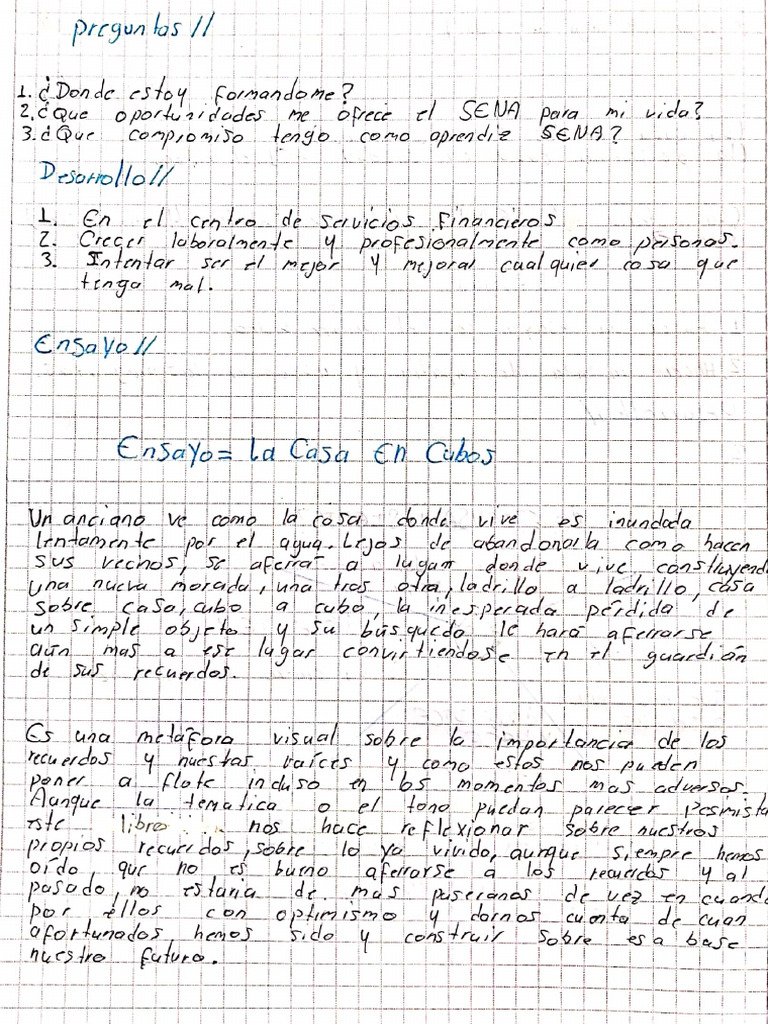 preguntas //
1. ¿Donde estoy formandome?
2. ¿Que oportunidades me ofrece el SENA para mi vida?
3. ¿Que compromiso tengo como aprendiz SENA?
Desarrollo //
1. En el centro de servicios financieros
2. Crecer laboralmente y profesionalmente como personas.
3. Intentar ser el mejor y mejorar cualquier cosa que
tenga mal.
Ensayo //
Ensayo = la Casa en Cubos
Un anciano ve como la casa donde vive es inundada
lentamente por el agua. Lejos de abandonarla como hacen
sus vecinos, se aferrar a lugar donde vive construyendo
una nueva morada, una tras otra, ladrillo a ladrillo, casa
sobre casa, cubo a cubo, la inesperada pérdida de
un simple objeto y su búsqueda le hará aferrarse
aún mas a ese lugar convirtiendose en el guardián
de sus recuerdos.
Es una metáfora visual sobre la importancia de los
recuerdos y nuestas raíces y como estos nos pueden
poner a flote incluso en los momentos mas adversos.
Aunque la tematica o el tono puedan parecer Pesmista
este libro nos hace reflexionar sobre nuestros
propios recuerdos, sobre lo ya vivido, aunque siempre hemos
oído que no es bueno aferrarse a los recuerdos y al
pasado, no estaria de mas pasearanos de vez en cuando
por ellos con optimismo y darnos cuenta de cuan
afortunados hemos sido y construir sobre esa base
nuestro futuro.